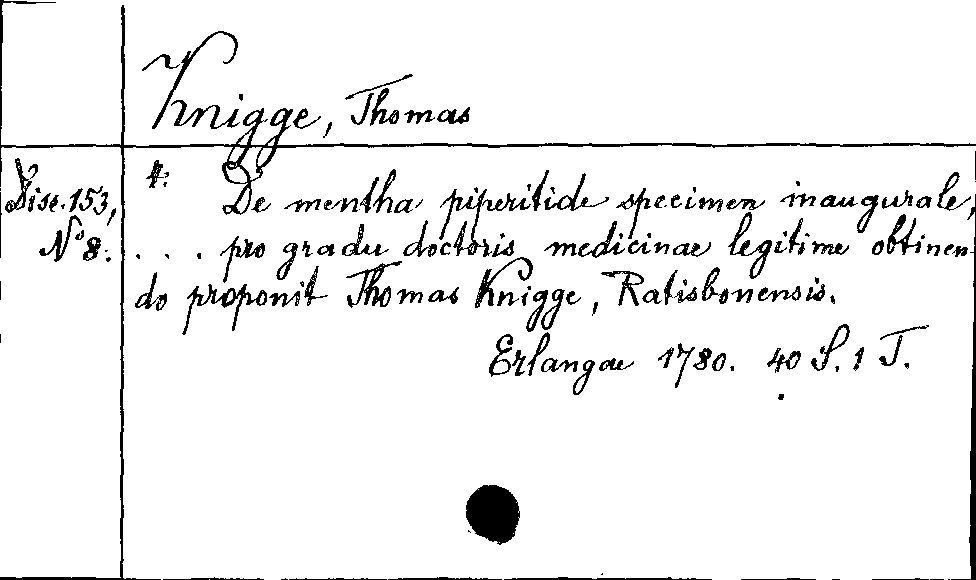 Knigge, Thomas
Diss. 153, 4: De mentha piperitide specimen inaugurale,
No 8. . . . pro gradu doctoris medicinae legitime obtinen-
do proponit Thomas Knigge, Ratisbonensis.
Erlangae 1780. 40 S. 1 T.